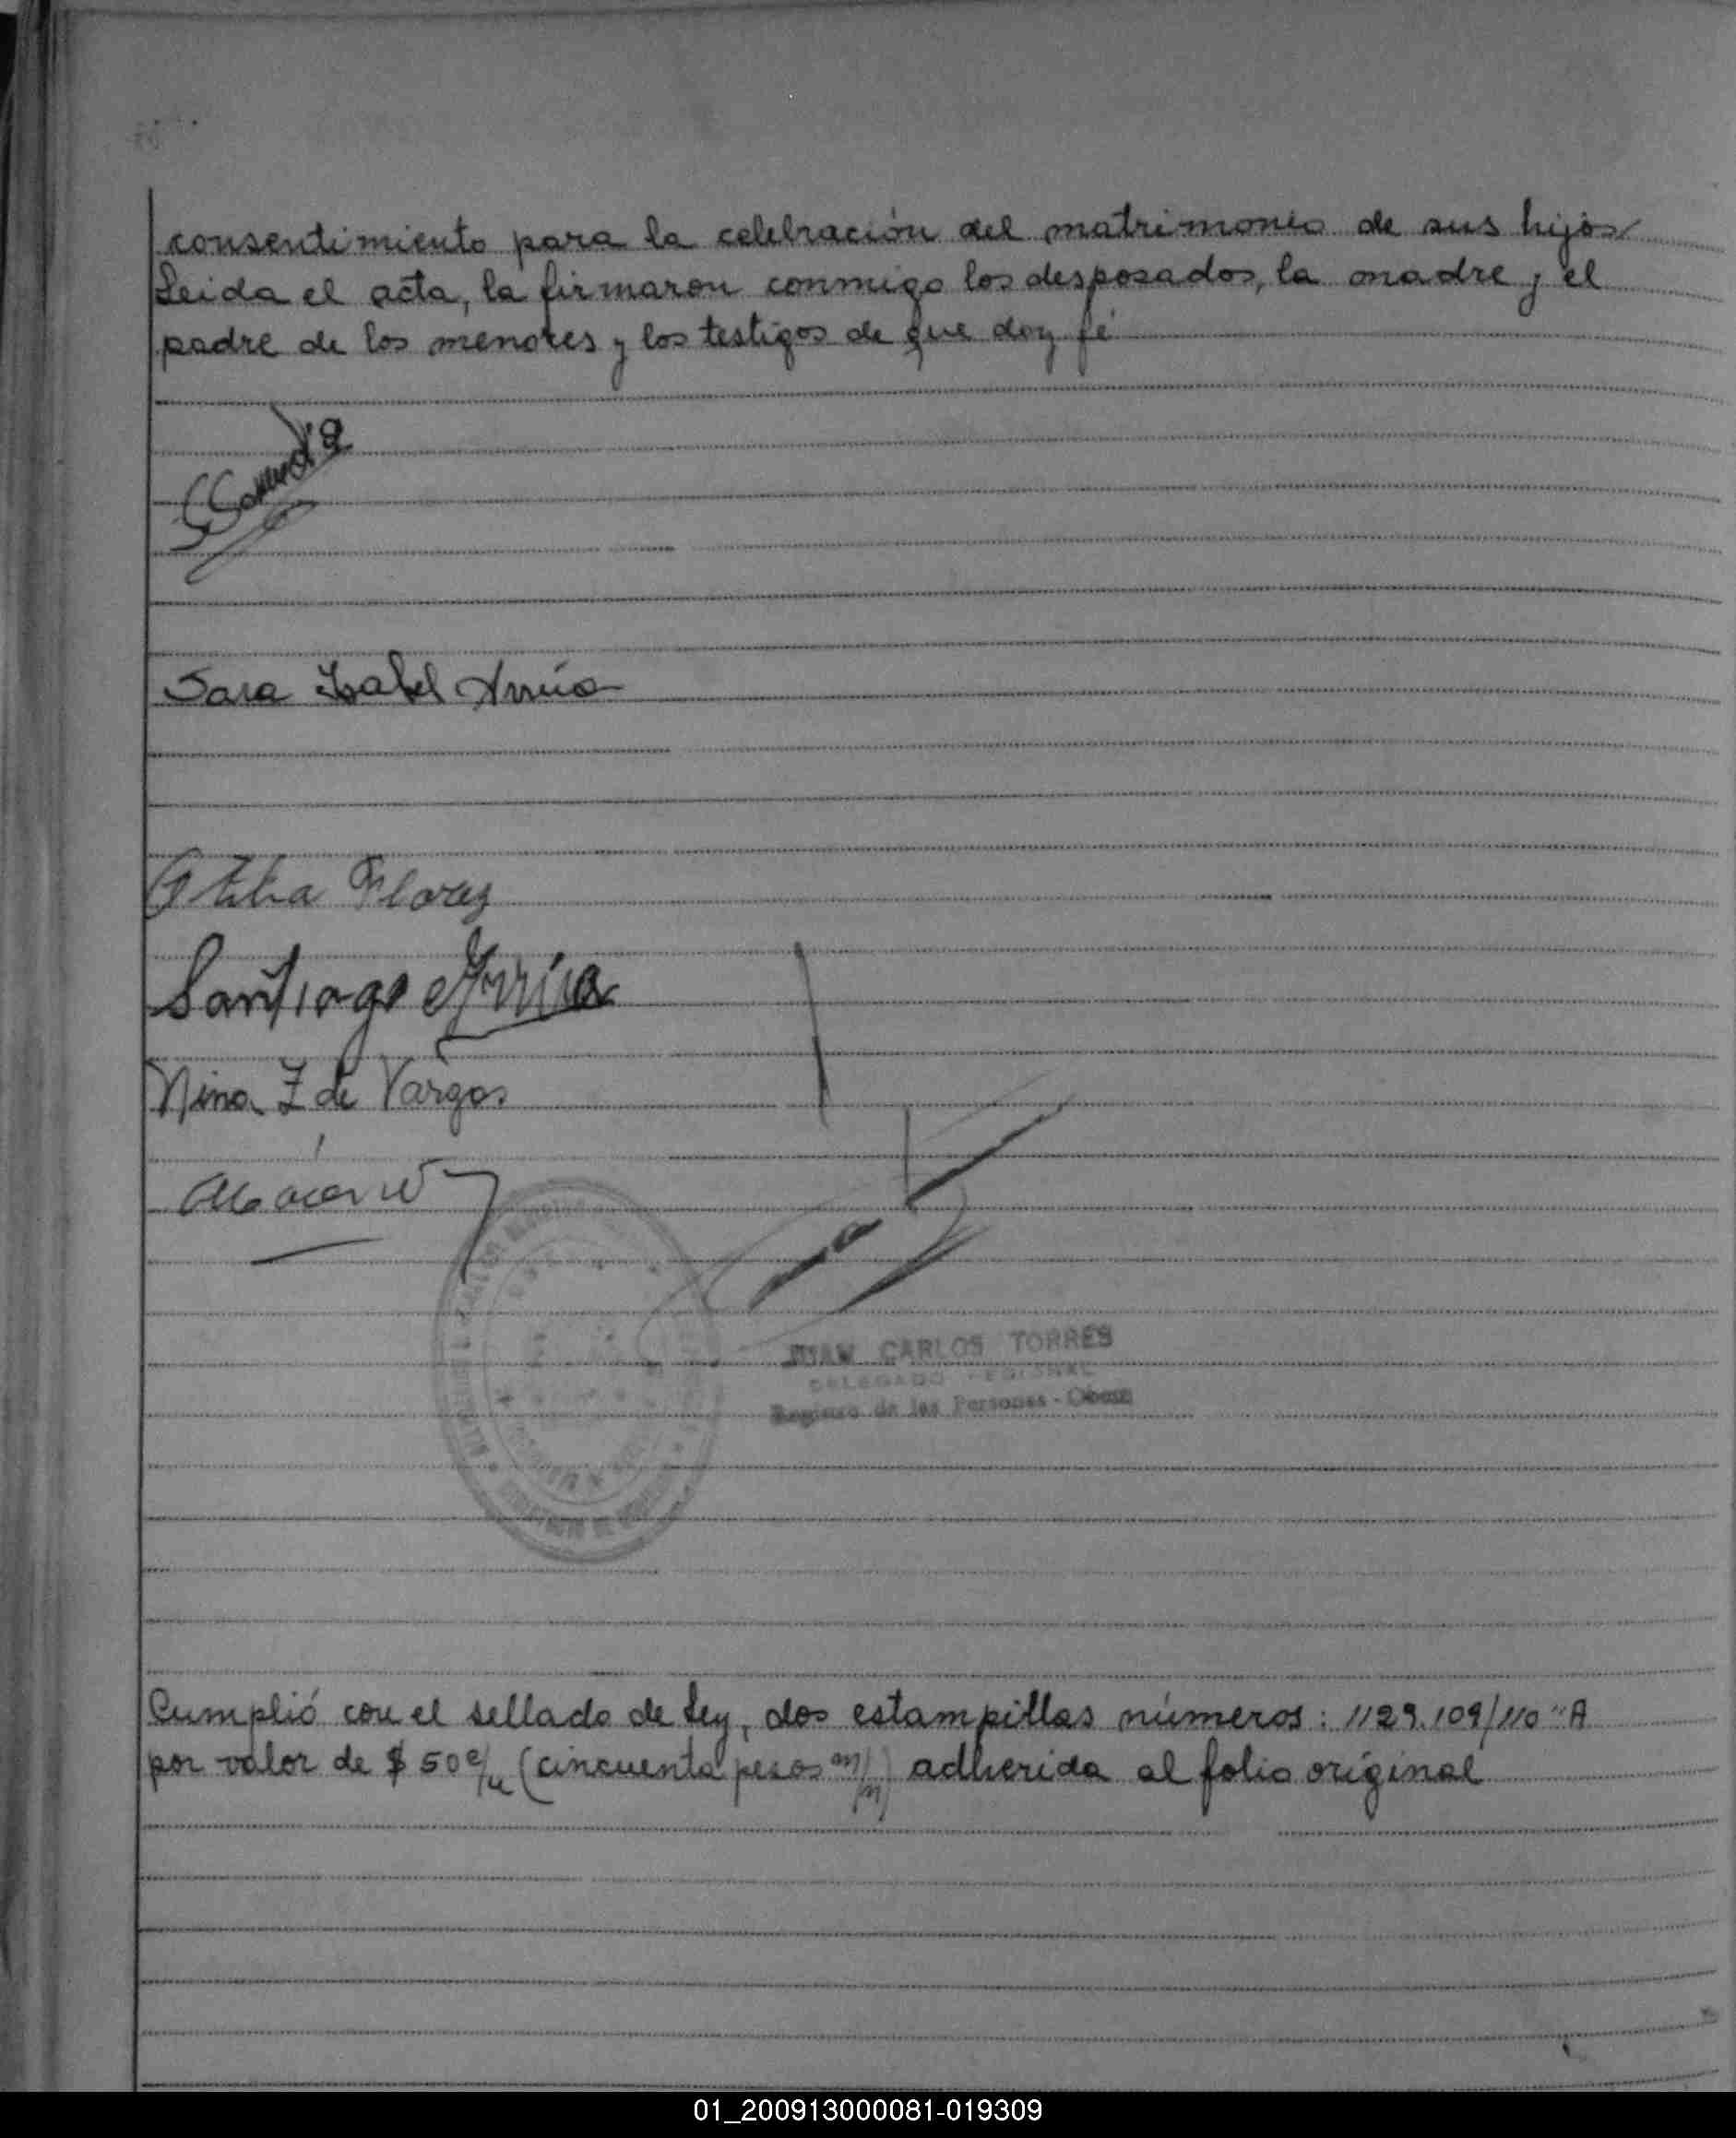 consentimiento para la celebración del matrimonio de sus hijos
Leida el acta, la firmaron conmigo los desposados, la madre y el
padre de los menores y los testigos de que doy fé
Sara Isabel
Otilia Florez
Santiago
Nina Z de Vargas
JUAN CARLOS TORRES
DELEGADO REGIONAL
Registro de las Personas - Oberá
Cumplió con el sellado de Ley, dos estampillas números: 1129.109/110 "A
por valor de $ 50 c/u (cincuenta pesos m/n) adherida al folio original
01_200913000081-019309